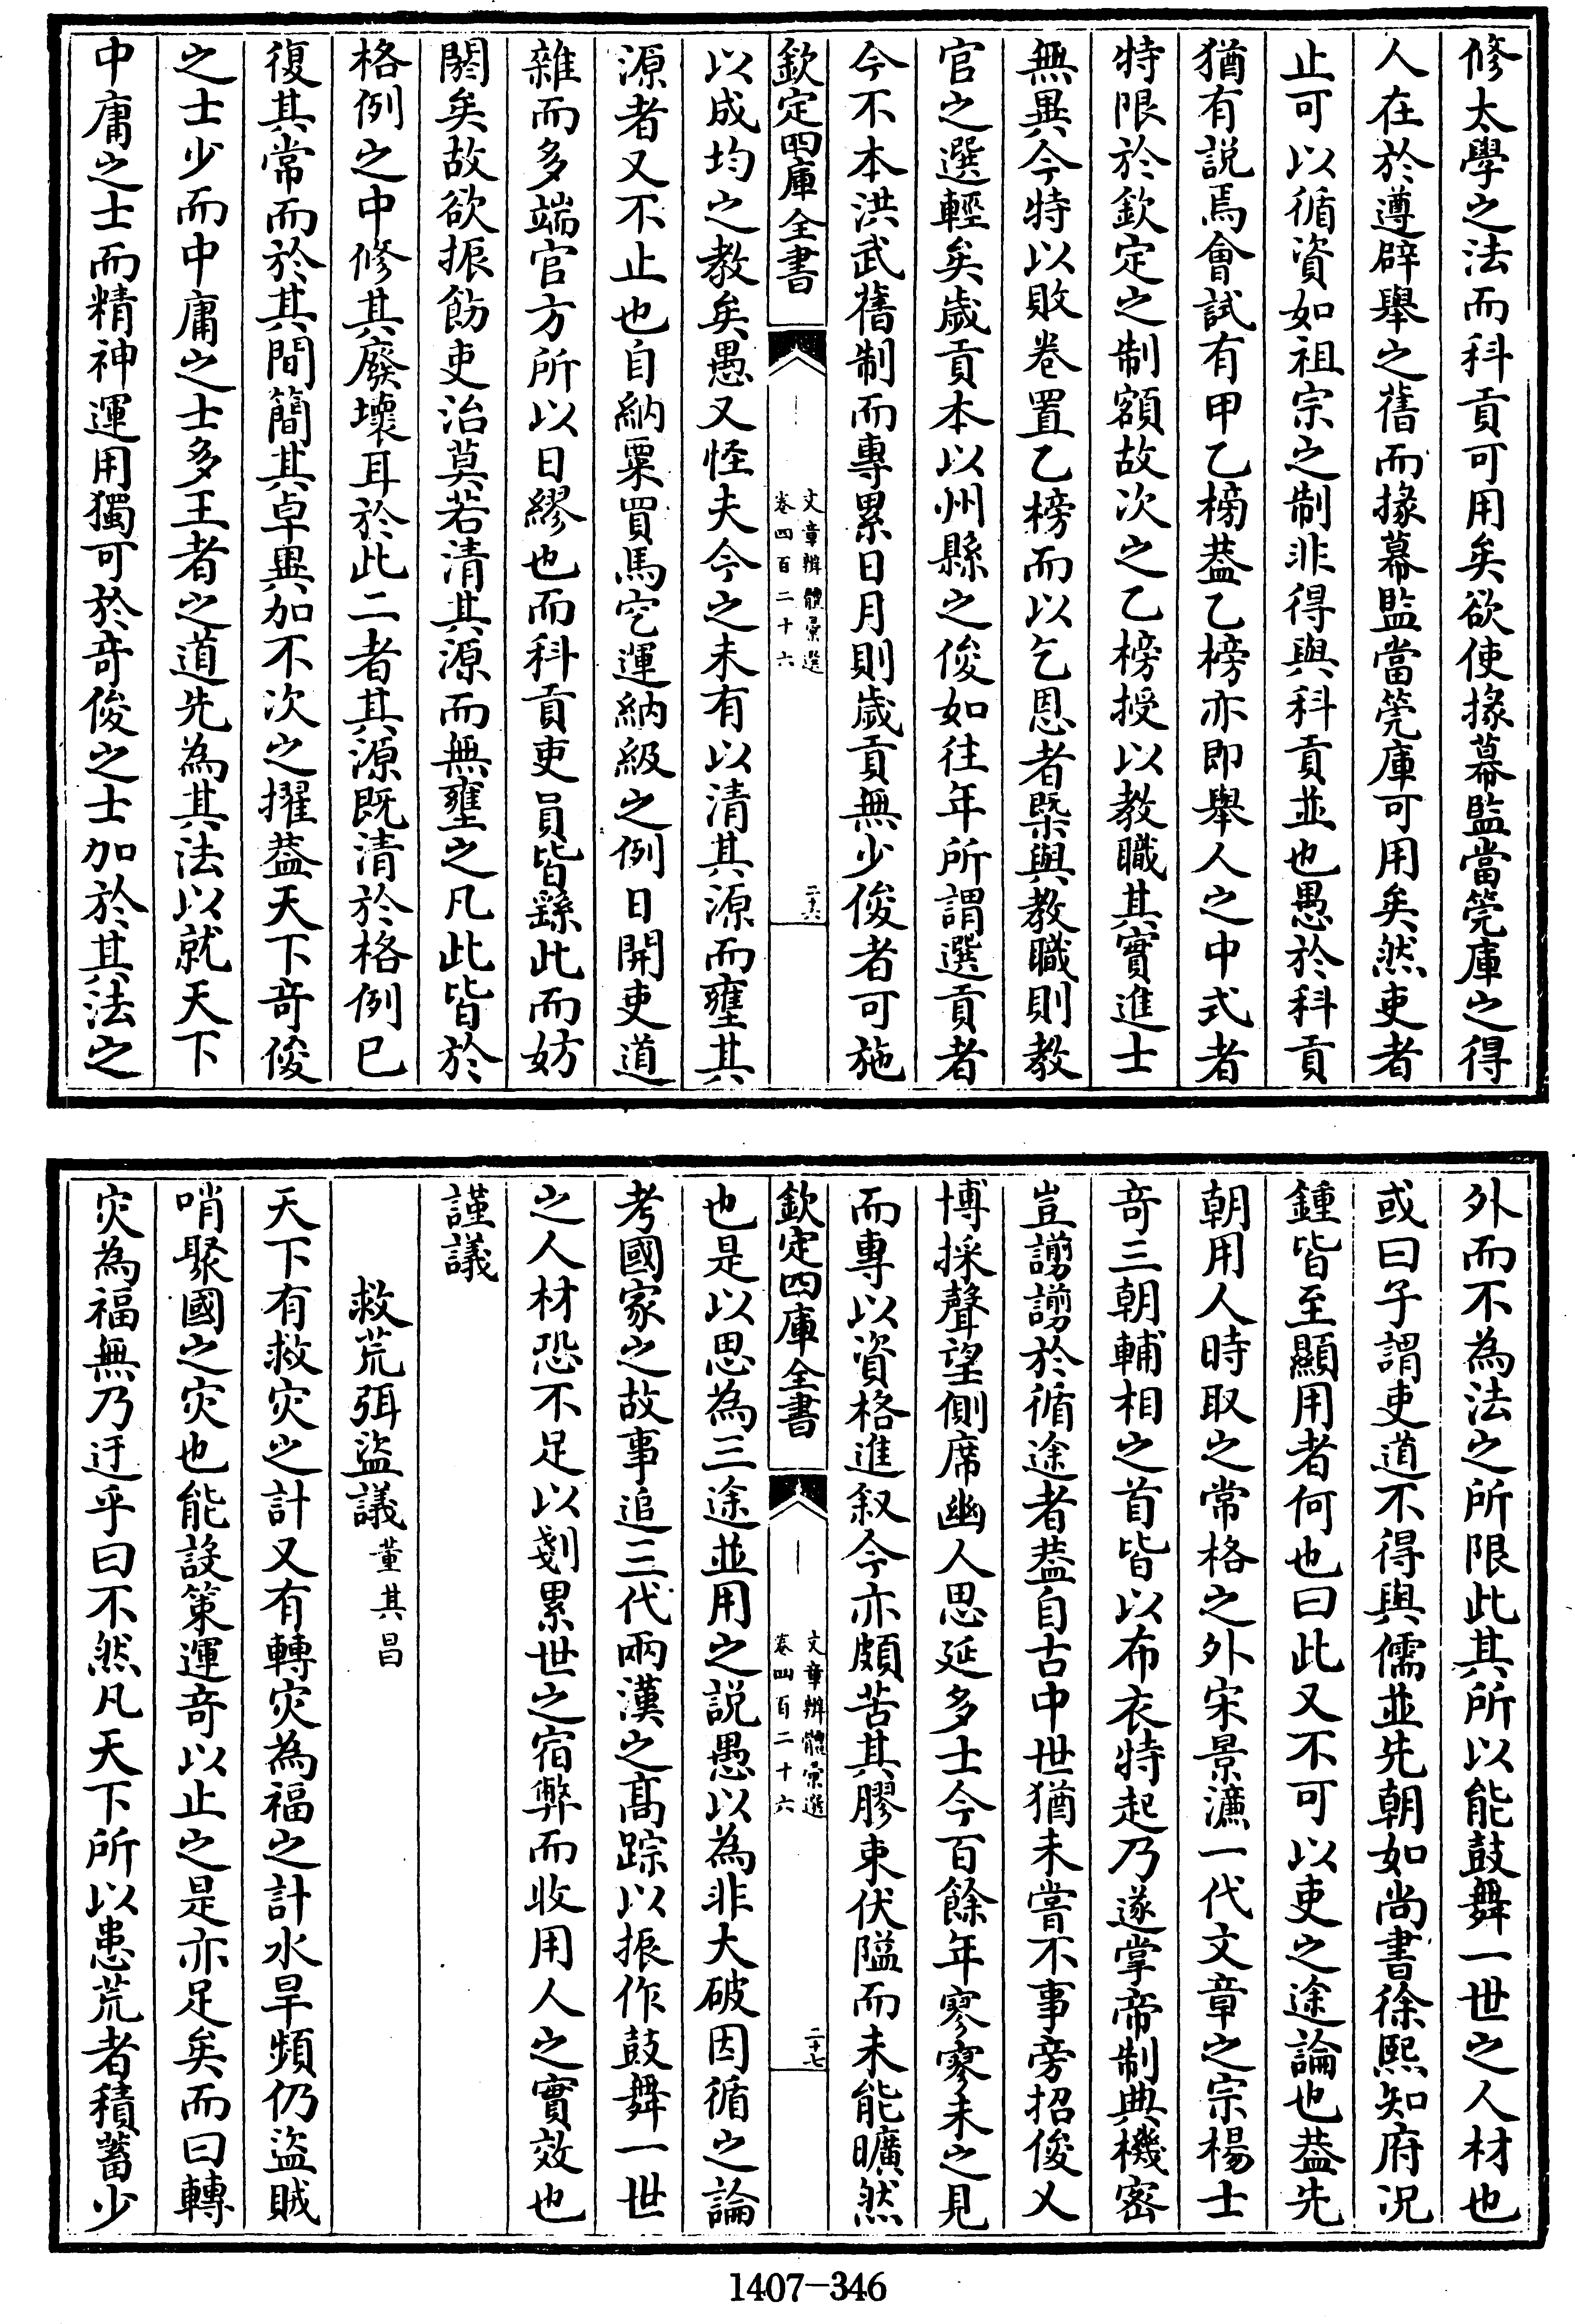 修太學之法而科貢可用矣欲使掾幕監當筦庫之得
人在於遵辟舉之舊而掾幕監當筦庫可用矣然吏者
止可以循資如祖宗之制非得與科貢並也愚於科貢
猶有說焉會試有甲乙榜葢乙榜亦即舉人之中式者
特限於欽定之制額故次之乙榜授以教職其實進士
無異今特以敗卷置乙榜而以乞恩者槩與教職則教
官之選輕矣歲貢本以州縣之俊如往年所謂選貢者
今不本洪武舊制而專累日月則歲貢無少俊者可施
欽定四庫全書
文章辨體彙選
卷四百二十六
二十六
以成均之教矣愚又怪夫今之未有以清其源而壅其
源者又不止也自納粟買馬空運納級之例日開吏道
雜而多端官方所以日繆也而科貢吏員皆繇此而妨
閼矣故欲振飭吏治莫若清其源而無壅之凡此皆於
格例之中修其廢壞耳於此二者其源既清於格例已
復其常而於其間簡其卓異加不次之擢葢天下竒俊
之士少而中庸之士多王者之道先為其法以就天下
中庸之士而精神運用獨可於竒俊之士加於其法之
外而不為法之所限此其所以能鼓舞一世之人材也
或曰子謂吏道不得與儒並先朝如尚書徐熙知府况
鍾皆至顯用者何也曰此又不可以吏之途論也葢先
朝用人時取之常格之外宋景濂一代文章之宗楊士
竒三朝輔相之首皆以布衣特起乃遂掌帝制典機密
豈謭謭於循途者葢自古中世猶未嘗不事旁招俊乂
博採聲望側席幽人思延多士今百餘年寥寥未之見
而專以資格進叙今亦頗苦其膠束伏隘而未能曠然
欽定四庫全書
文章辨體彙選
卷四百二十六
二十七
也是以思為三途並用之說愚以為非大破因循之論
考國家之故事追三代兩漢之髙踪以振作鼓舞一世
之人材恐不足以剗累世之宿弊而收用人之實效也
謹議
救荒弭盜議董其昌
天下有救灾之計又有轉灾為福之計水旱頻仍盜賊
哨聚國之灾也能設策運竒以止之是亦足矣而曰轉
灾為福無乃迂乎曰不然凡天下所以患荒者積蓄少
1407-346